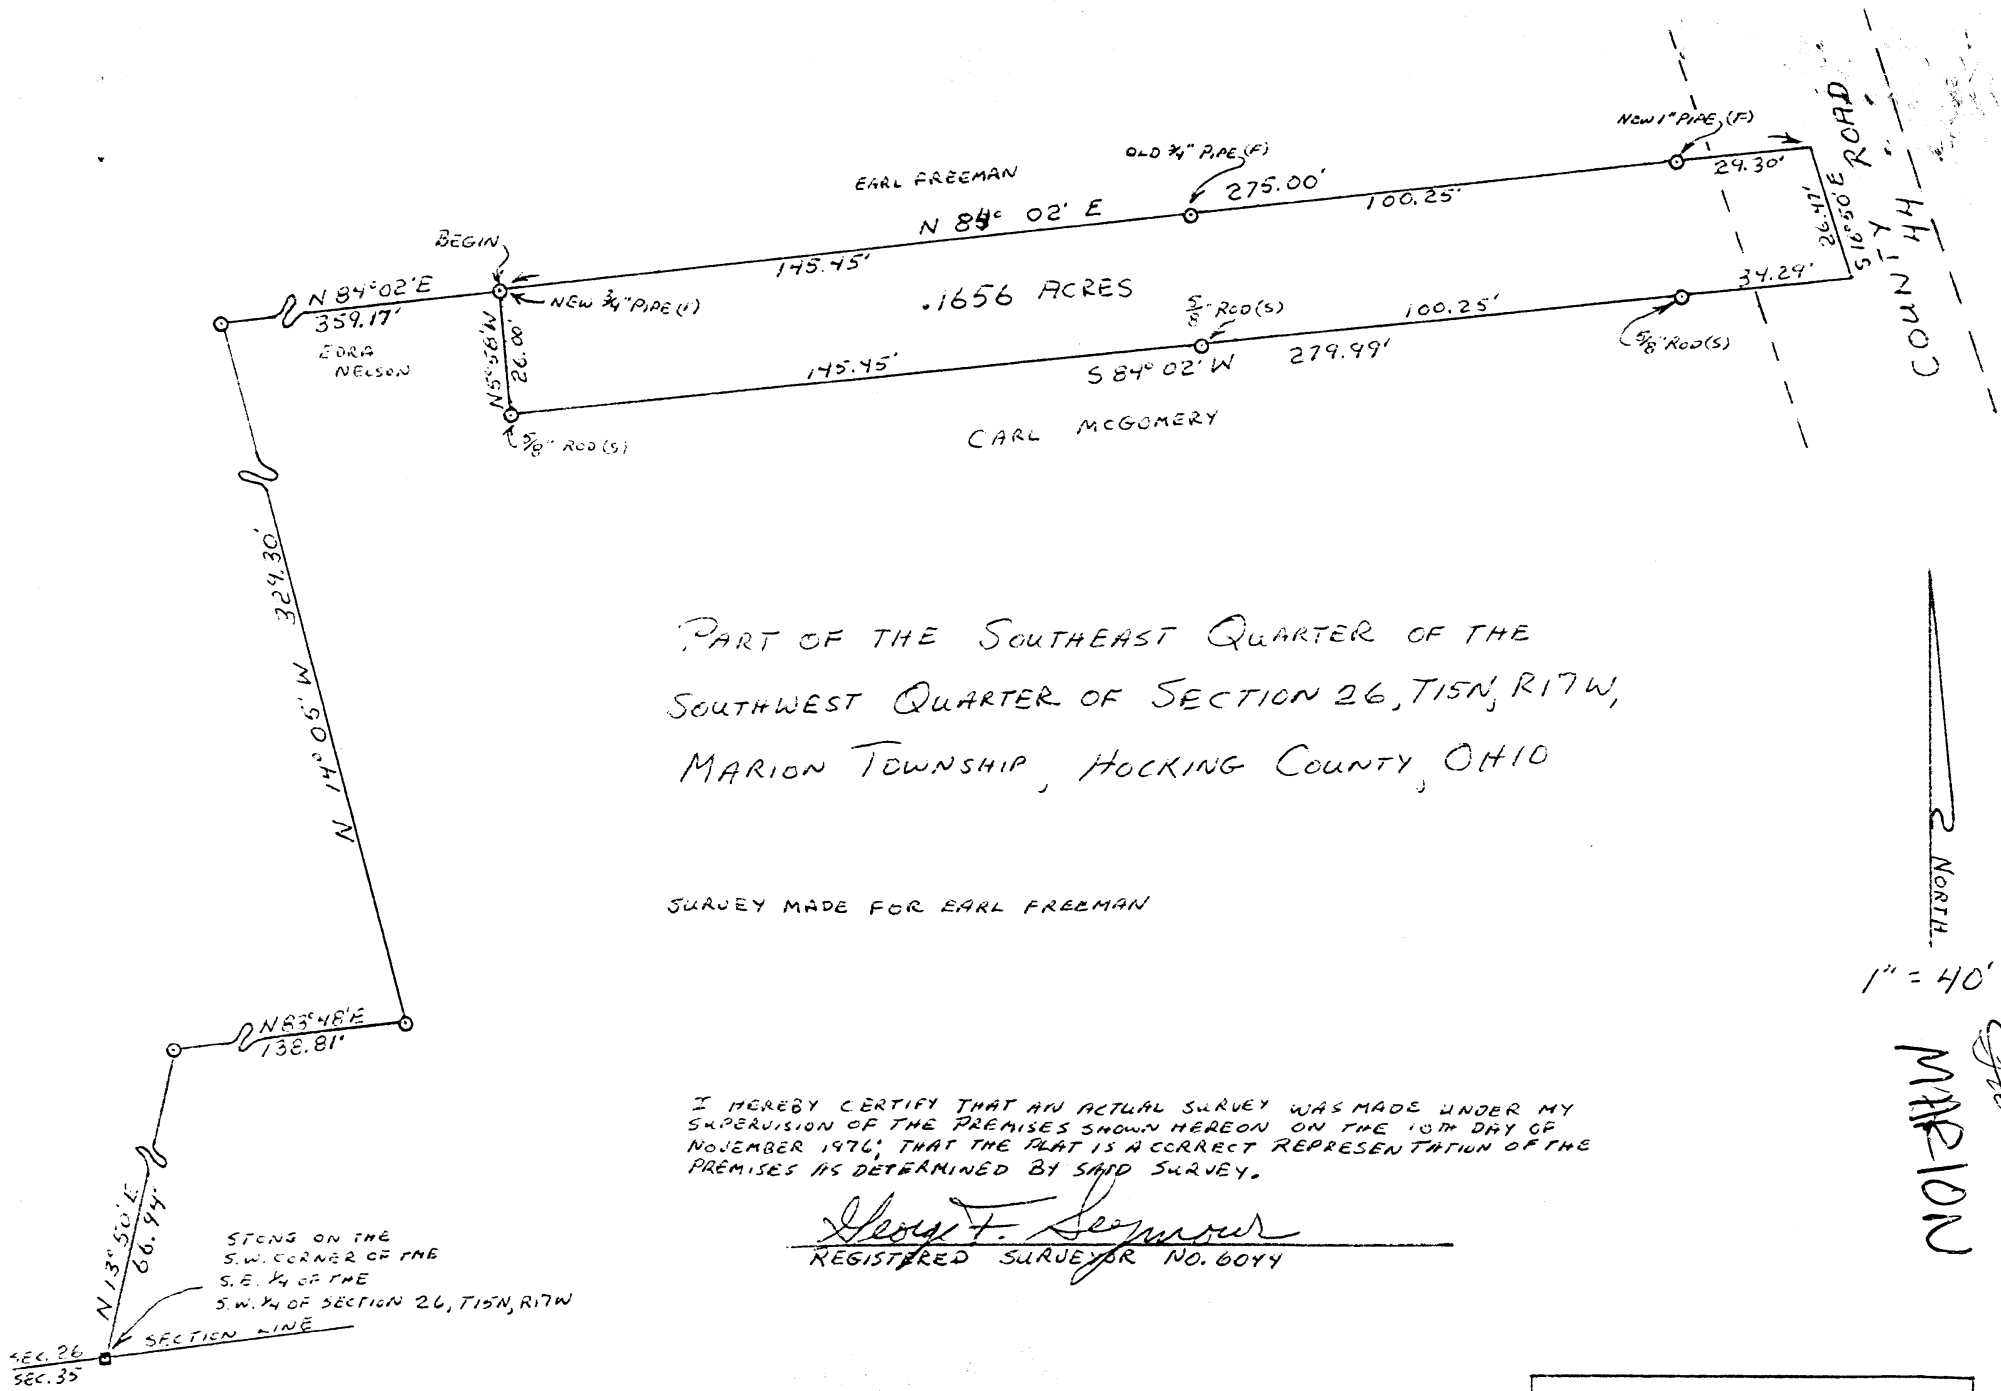 NEW 1" PIPE (F)
OLD 3/4" PIPE (F)
EARL FREEMAN
N 84° 02' E
275.00'
100.25'
29.30'
COUNTY ROAD
44
26.47'
S 16° 50' E
BEGIN
145.45'
N 84° 02' E
359.17'
EDRA
NELSON
NEW 3/4" PIPE (F)
.1656 ACRES
5/8" ROD (S)
100.25'
34.29'
5/8" ROD (S)
N 5° 58' W
26.00'
145.45'
S 84° 02' W
279.99'
5/8" ROD (S)
CARL MCGOMERY
N 14° 05' W 329.30'
PART OF THE SOUTHEAST QUARTER OF THE
SOUTHWEST QUARTER OF SECTION 26, T15N, R17W,
MARION TOWNSHIP, HOCKING COUNTY, OHIO
SURVEY MADE FOR EARL FREEMAN
NORTH
1" = 40'
MARION
N 83° 48' E
138.81'
I HEREBY CERTIFY THAT AN ACTUAL SURVEY WAS MADE UNDER MY
SUPERVISION OF THE PREMISES SHOWN HEREON ON THE 10TH DAY OF
NOVEMBER 1976; THAT THE PLAT IS A CORRECT REPRESENTATION OF THE
PREMISES AS DETERMINED BY SAID SURVEY.
George F. Seymour
REGISTERED SURVEYOR NO. 6044
N 13° 50' E
66.94'
STONE ON THE
S.W. CORNER OF THE
S.E. 1/4 OF THE
S.W. 1/4 OF SECTION 26, T15N, R17W
SECTION LINE
SEC. 26
SEC. 35